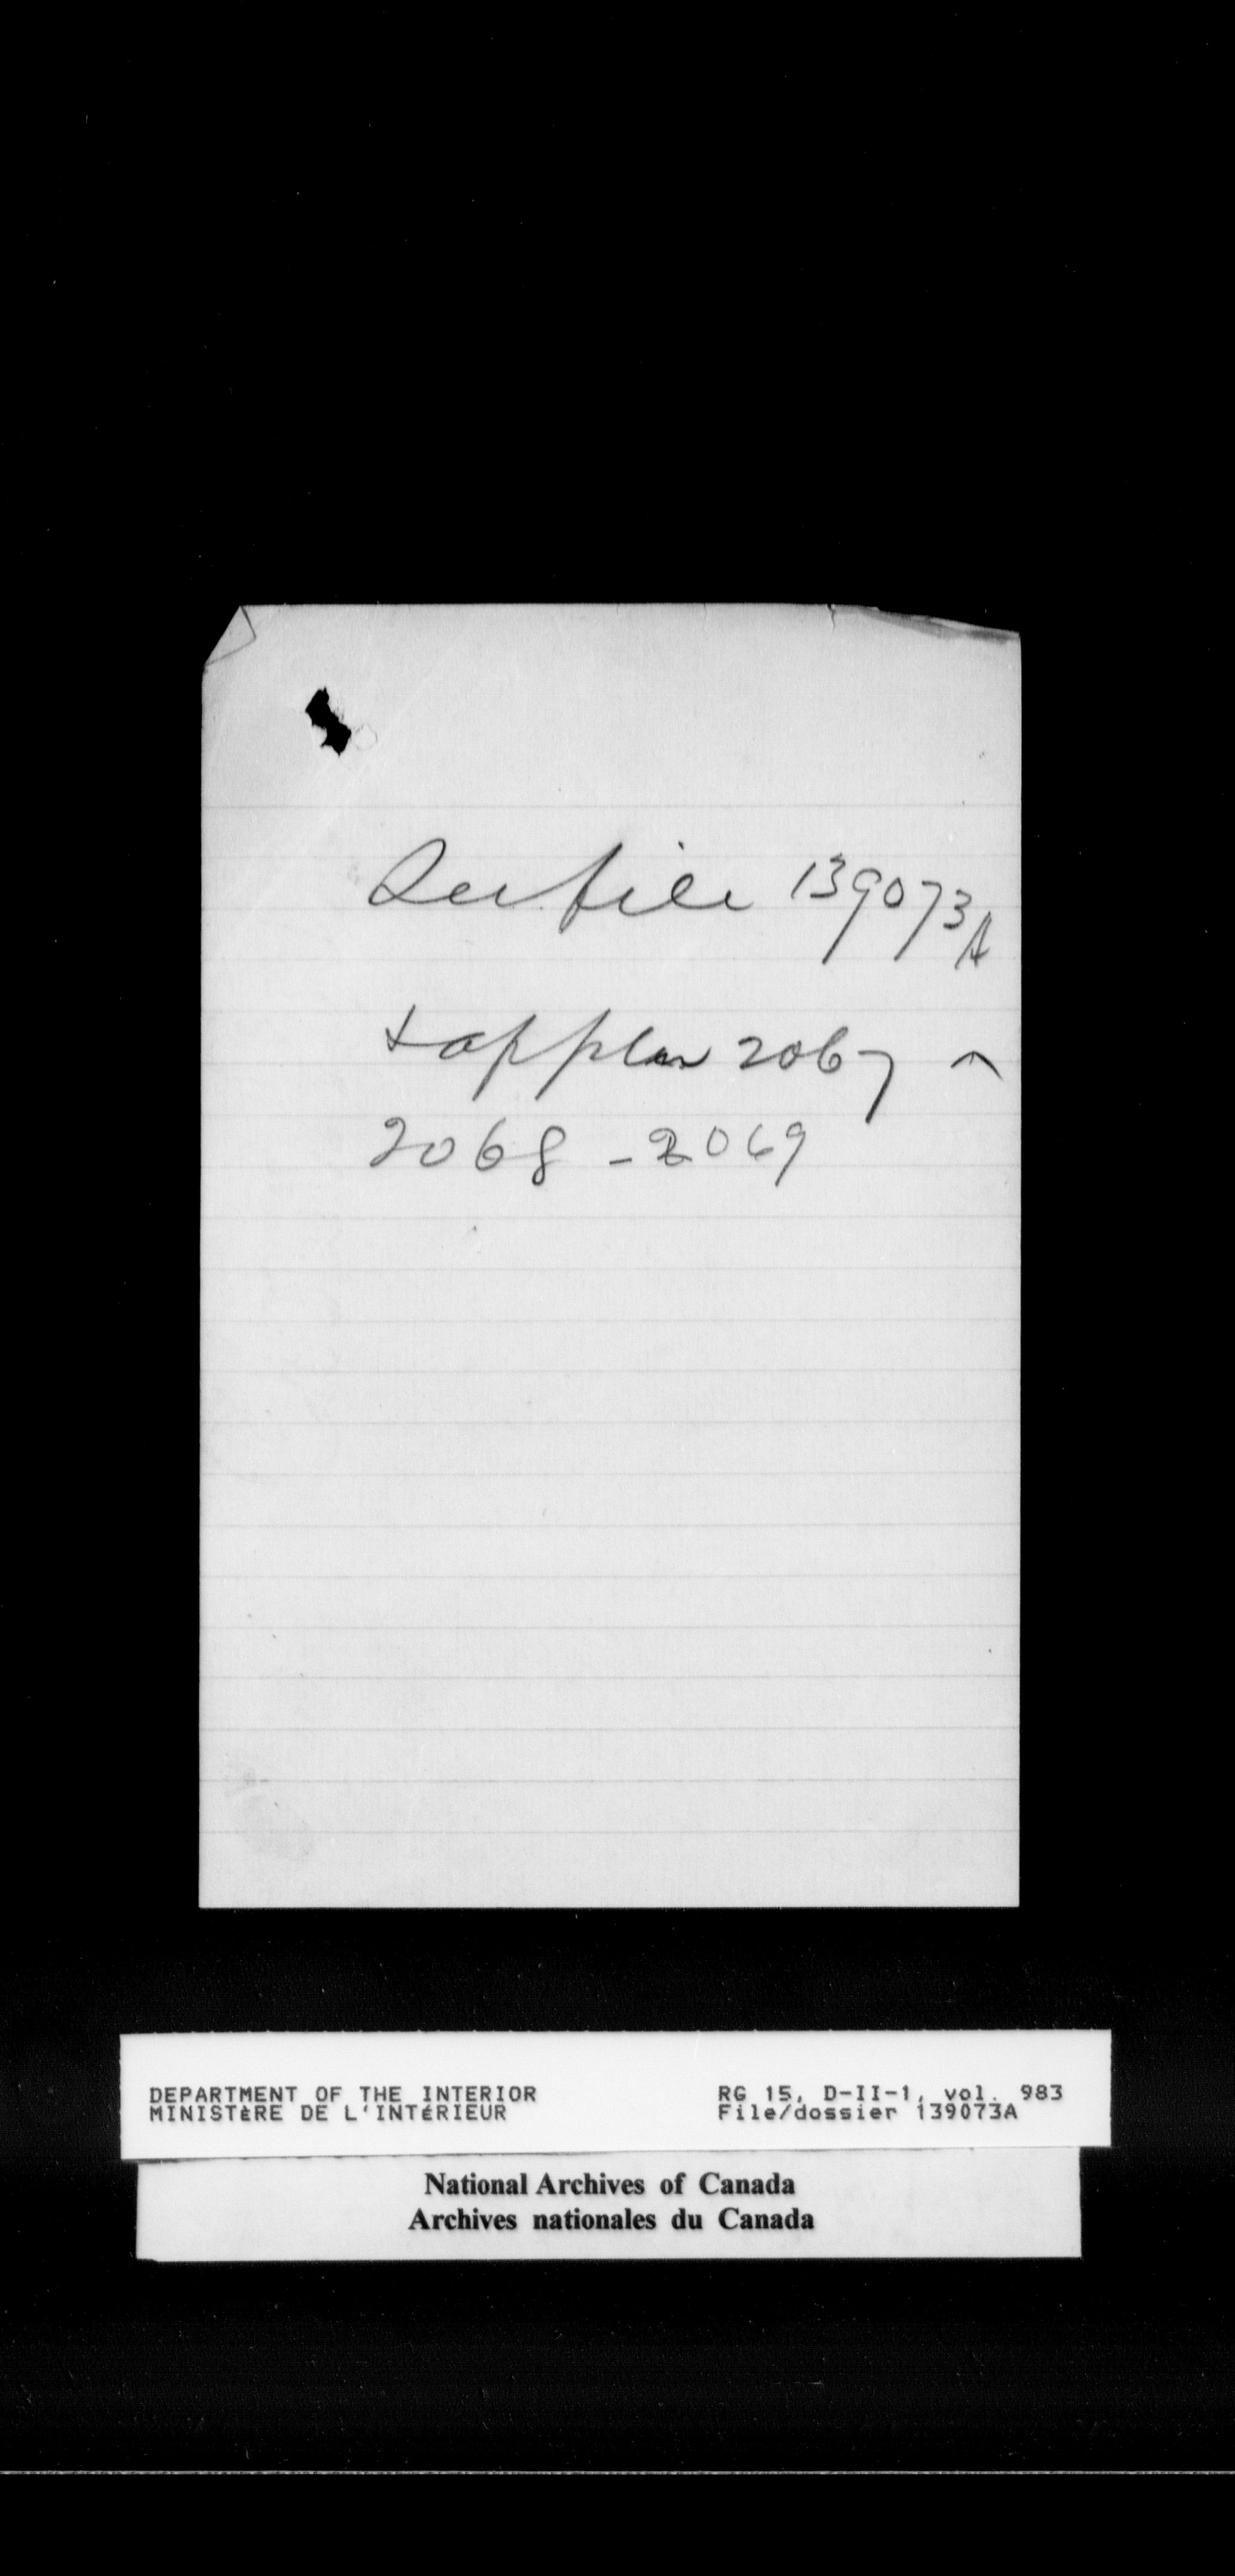 See file 139073A
& appln 2067 ^
2068 - 2069
DEPARTMENT OF THE INTERIOR
MINISTÈRE DE L'INTÉRIEUR
RG 15, D-II-1, vol. 983
File/dossier 139073A
National Archives of Canada
Archives nationales du Canada